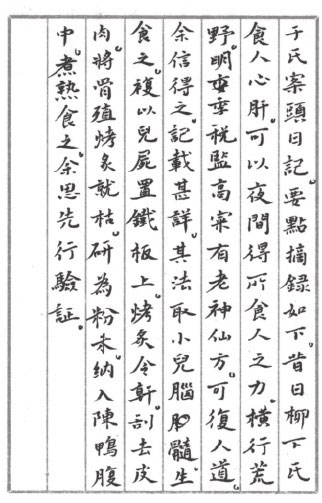 于氏案頭日記。要點摘録如下。昔日柳下氏
食人心肝。可以夜間得所食人之力。橫行荒
野。明税監高寀有老神仙方。可復人道。
余信得之。記載甚詳。其法取小兒腦髓。生
食之。複以兒屍置鐵板上。烤炙令去皮
肉。將骨殖烤炙就枯。研為粉末。納入陳鴨腹
中。煮熟食之。余思先行驗証。